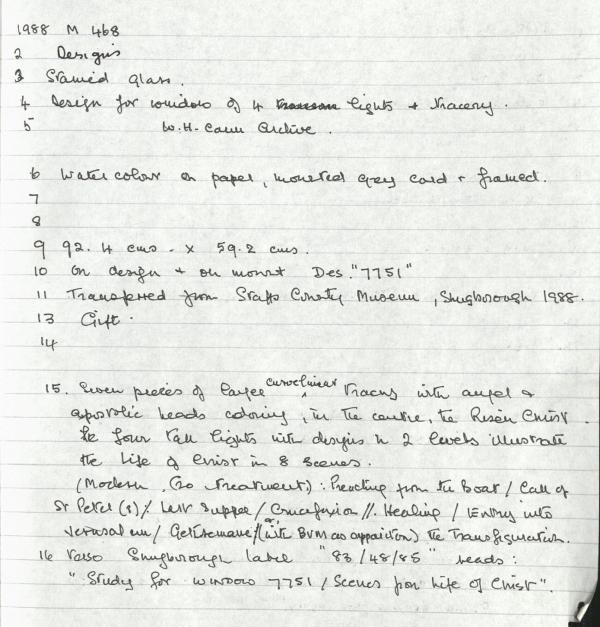 1988 M 468
2 Designs
3 Stained Glass.
4 Design for window of 4 lights + tracery.
5 W.H. Archive.
6 Watercolour on paper, mounted grey card + framed.
7
8
9 92.4 cms. x 59.2 cms.
10 On design + on mount Des. "7751"
11 Transferred from Staffs County Museum, Shugborough 1988.
13 Gift.
14
15. Seven pieces of large curvilinear tracery with angel +
apostolic heads adoring, in the centre, the Risen Christ.
The four tall lights with designs in 2 levels illustrate
the life of Christ in 8 scenes.
(Modern, treatment): Preaching from the Boat / Call of
St Peter (?) / Last Supper / Crucifixion // Healing / Entry into
Jerusalem / Gethsemane / or (with BVM as apparition) the Transfiguration.
16 Verso Shugborough label "83/48/85" reads:
"Study for window 7751 / Scenes from Life of Christ".